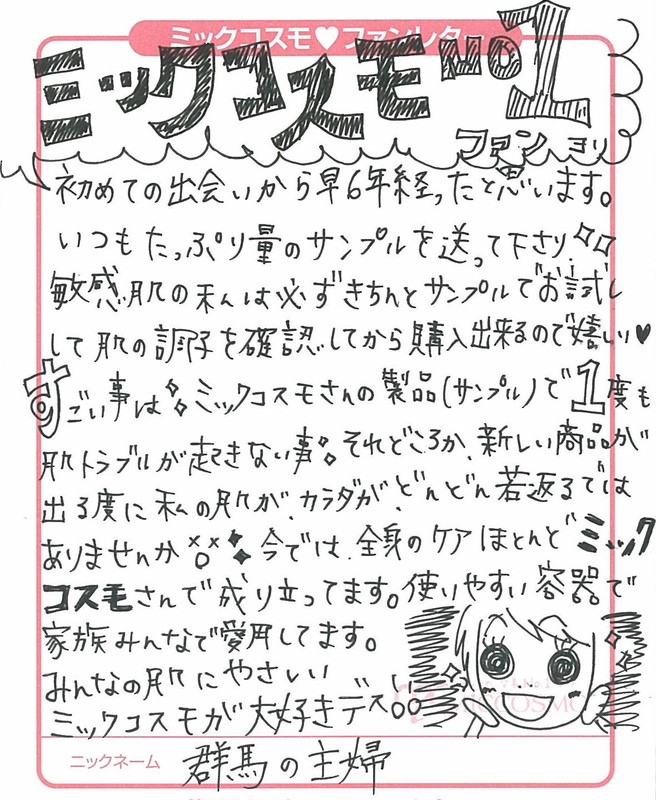 ミックコスモ♥ファンレター
ミックコスモNO1
ファンより
初めての出会いから早6年経ったと思います。
いつもたっぷり量のサンプルを送って下さり
敏感肌の私は必ずきちんとサンプルでお試し
して肌の調子を確認してから購入出来るので嬉しい♥
すごい事はミックコスモさんの製品(サンプル)で1度も
肌トラブルが起きない事それどころか、新しい商品が
出る度に私の肌が、カラダが、どんどん若返るでは
ありませんか 今では、全身のケアほとんどミック
コスモさんで成り立ってます。使いやすい容器で
家族みんなで愛用してます。
みんなの肌にやさしい
ミックコスモが大好きデス!!
COSMO
ニックネーム 群馬の主婦